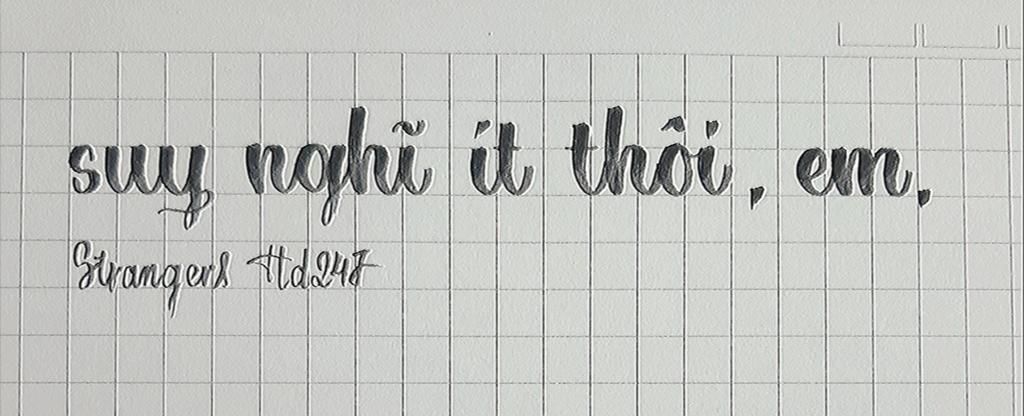 suy nghĩ ít thôi, em,
Strangers Hd247